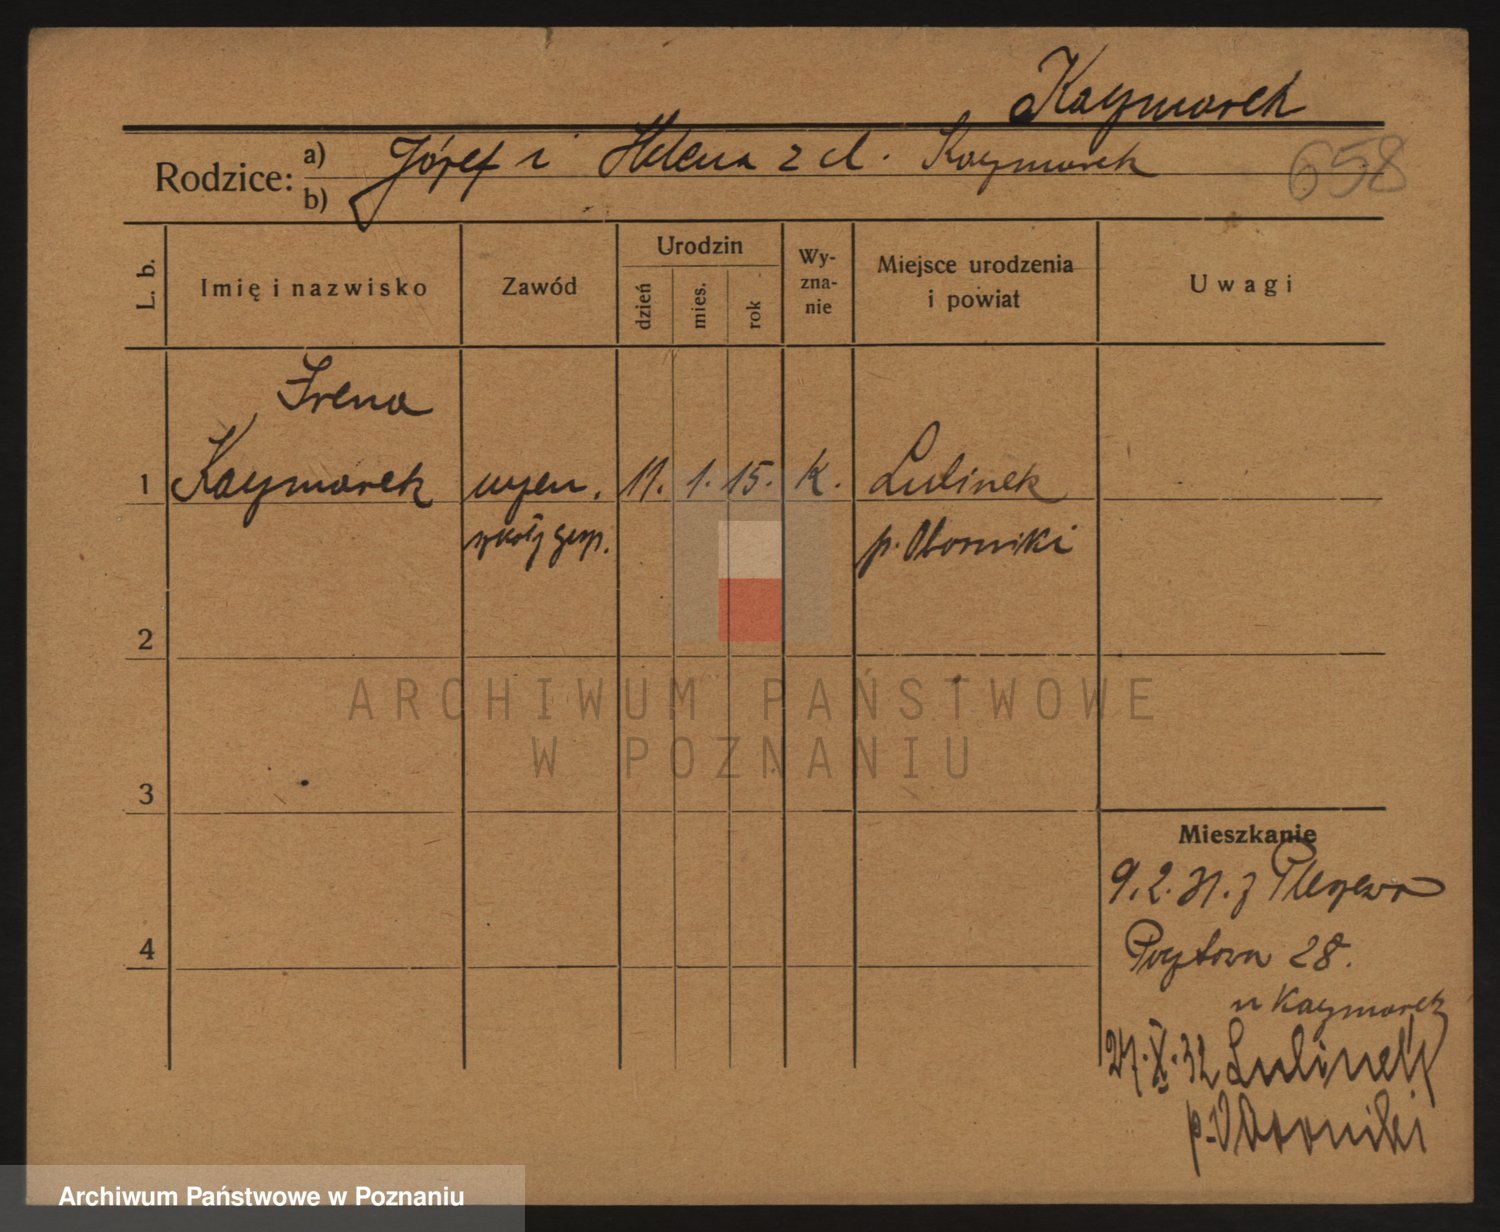 Kaczmarek
Rodzice: a) Józef i Helena z d. Kaczmarek
b)
658
L. b.
Imię i nazwisko
Zawód
Urodzin
dzień
mies.
rok
Wy-
zna-
nie
Miejsce urodzenia
i powiat
Uwagi
Irena
1 Kaczmarek uczen. 11. 1. 15. k. Lulinek
szkoły gosp. p. Oborniki
2
3
4
ARCHIWUM PAŃSTWOWE
W POZNANIU
Mieszkanie
9.2.31. z Pleszewa
Pocztowa 28.
u Kaczmarek
27.X.32 Lulinek
p. Oborniki
Archiwum Państwowe w Poznaniu